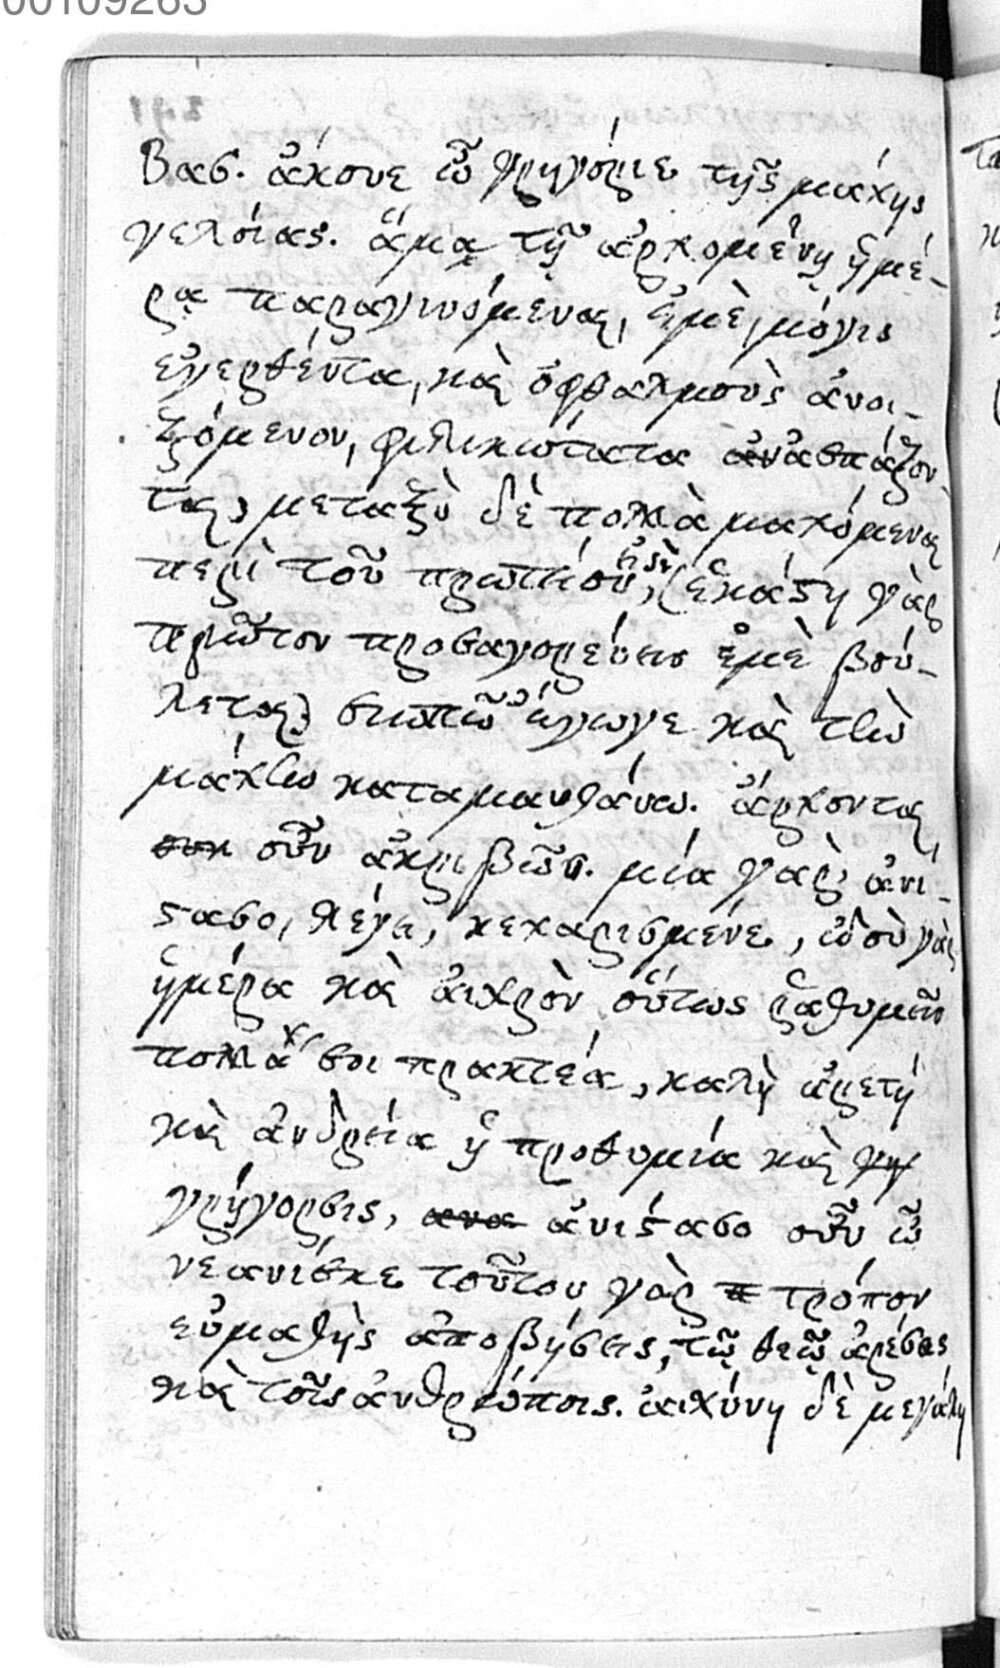 00109263
Βασ. ἄκουε ὦ Γρηγόριε τῆς μάχης
γελοίας. ἅμα τῇ ἀρχομένῃ ἡμέ-
ρᾳ παραγινόμεναι, ἐμὲ, μόγις
ἐγερθέντα, καὶ ὀφθαλμοὺς ἀνοι-
ξόμενον, φιλικώτατα ἀσπάζον-
ται, μεταξὺ δὲ πολλὰ μαχόμεναι
περὶ τοῦ πρωτείου, (ἑκάστη γὰρ
πρῶτον προσαγορεύειν ἐμὲ βού-
λεται) σιωπῶ ἔγωγε καὶ τὴν
μάχην καταμανθάνω. ἄρχονται
οὖν ἀκριβῶς. μία γὰρ, ἀνί-
στασο, λέγει, κεχαρισμένε, ἰδοὺ γὰρ
ἡμέρα καὶ αἰσχρὸν οὕτως ῥαθυμεῖν
πολλά σοι πρακτέα, καλὴ ἀρετὴ
καὶ ἀνδρεία ἡ προθυμία καὶ
γρήγορσις, ἀνίστασο οὖν ὦ
νεανίσκε τοῦτον γὰρ τρόπον
εὐμαθὴς ἀποβήσεις, τῷ θεῷ ἀρέσεις
καὶ τοῖς ἀνθρώποις. αἰσχύνη δὲ μεγάλη